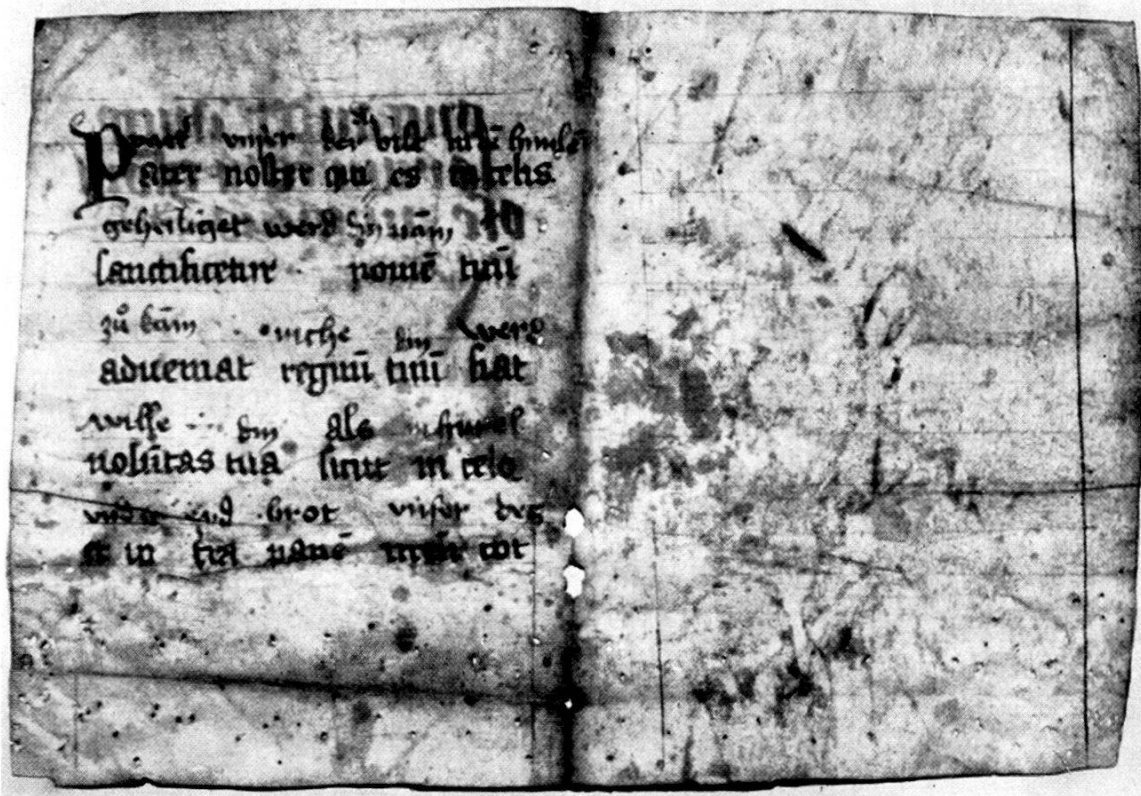 vnser der bist
Pater noster qui es in celis
geheiliget werd din nam
sanctificetur nomē tuū
zů kām riche din werd
adueniat regnū tuū fiat
wille din als himel
volūtas tua sicut in celo
vnd erd brot vnser deg
et in t̄ra panē cot